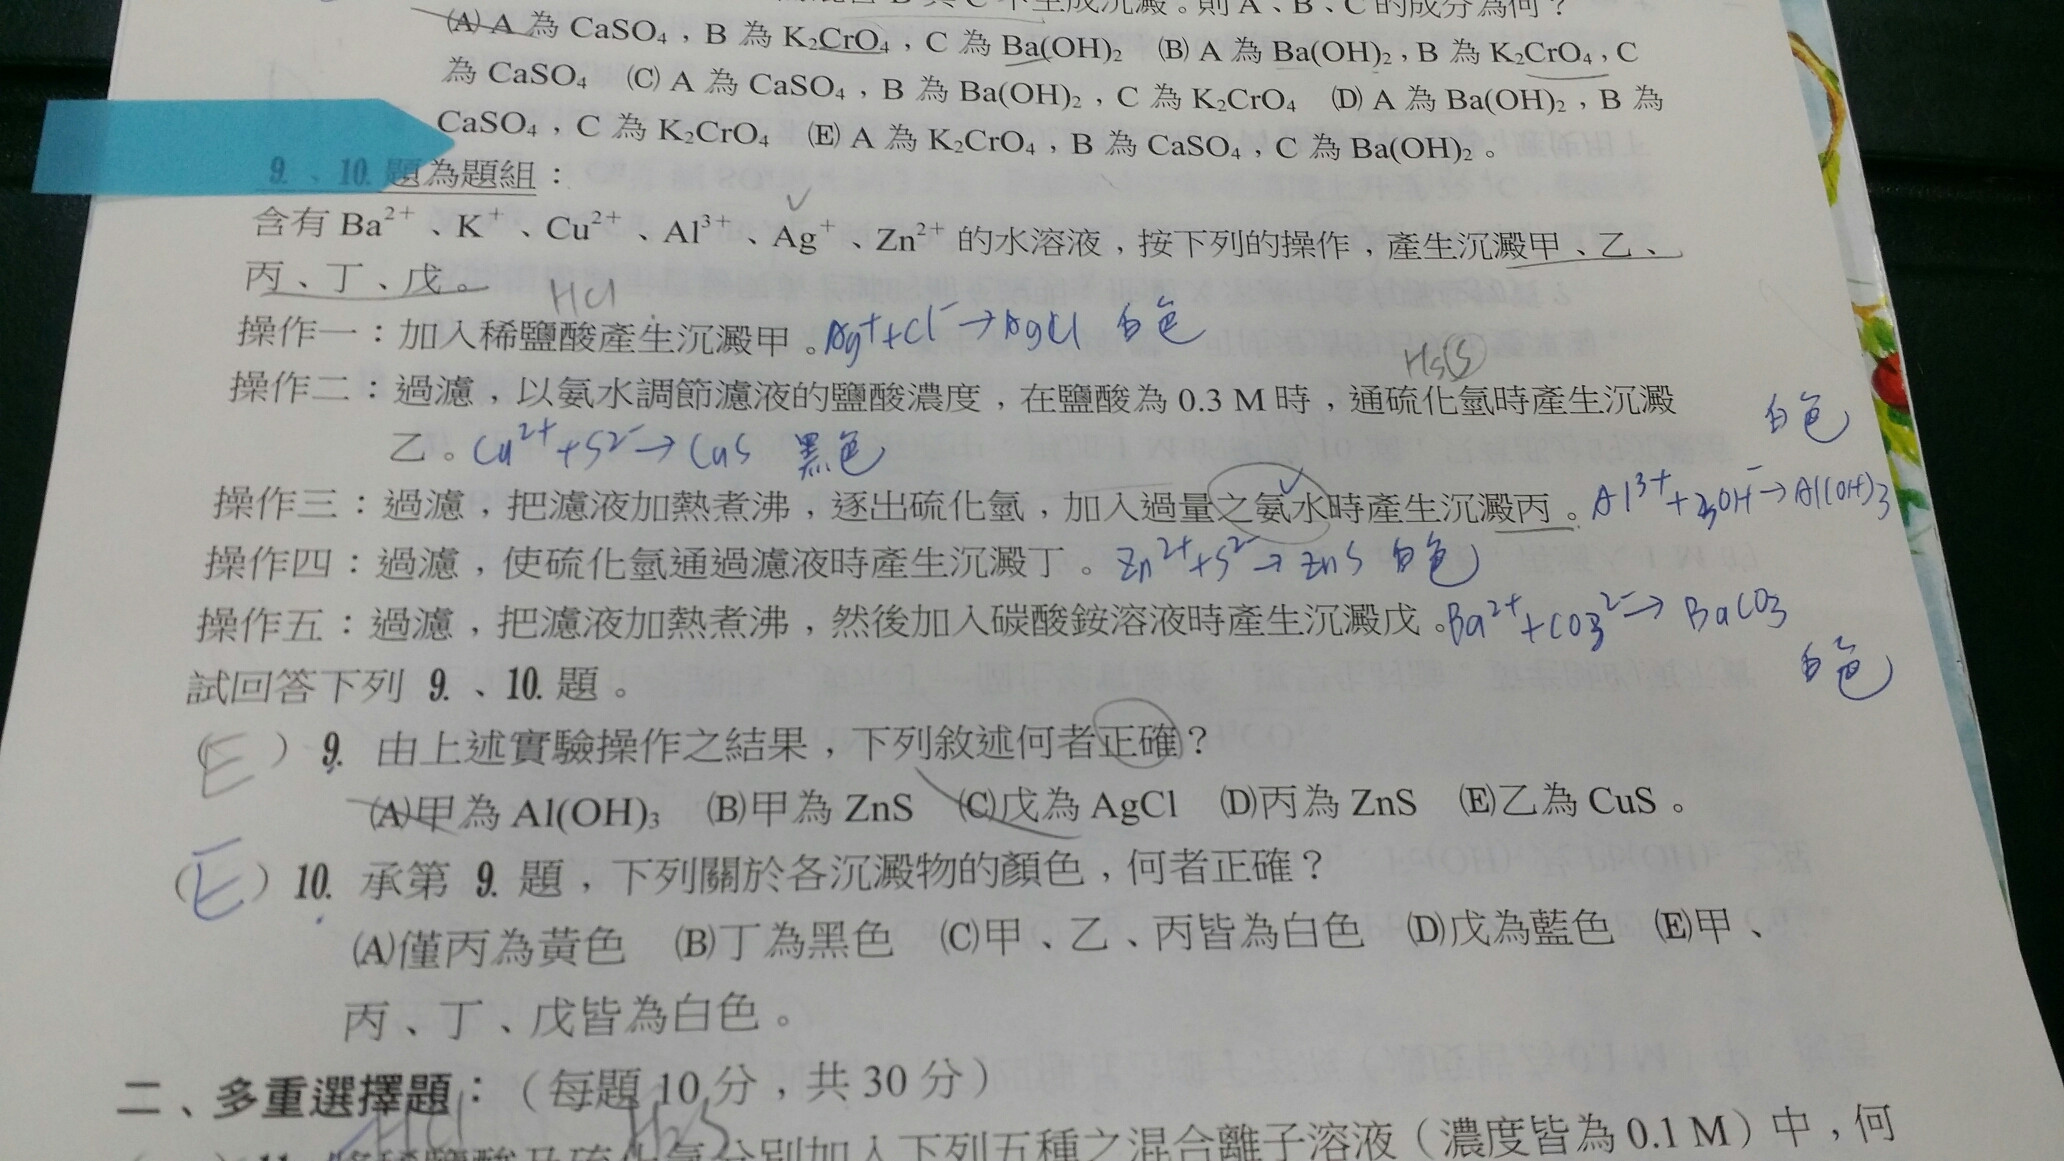 生成沉澱。則A、B、C的成分為何？
(A) A 為 CaSO₄，B 為 K₂CrO₄，C 為 Ba(OH)₂ (B) A 為 Ba(OH)₂，B 為 K₂CrO₄，C
為 CaSO₄ (C) A 為 CaSO₄，B 為 Ba(OH)₂，C 為 K₂CrO₄ (D) A 為 Ba(OH)₂，B 為
CaSO₄，C 為 K₂CrO₄ (E) A 為 K₂CrO₄，B 為 CaSO₄，C 為 Ba(OH)₂。
9.、10. 題為題組：
含有 Ba²⁺、K⁺、Cu²⁺、Al³⁺、Ag⁺、Zn²⁺ 的水溶液，按下列的操作，產生沉澱甲、乙、
丙、丁、戊。
HCl
操作一：加入稀鹽酸產生沉澱甲。Ag⁺+Cl⁻→AgCl 白色
操作二：過濾，以氨水調節濾液的鹽酸濃度，在鹽酸為 0.3 M 時，通硫化氫時產生沉澱
乙。Cu²⁺+S²⁻→CuS 黑色
白色
操作三：過濾，把濾液加熱煮沸，逐出硫化氫，加入過量之氨水時產生沉澱丙。Al³⁺+3OH⁻→Al(OH)₃
操作四：過濾，使硫化氫通過濾液時產生沉澱丁。Zn²⁺+S²⁻→ZnS 白色
操作五：過濾，把濾液加熱煮沸，然後加入碳酸銨溶液時產生沉澱戊。Ba²⁺+CO₃²⁻→BaCO₃
白色
試回答下列 9.、10. 題。
(E) 9. 由上述實驗操作之結果，下列敘述何者正確？
(A)甲為 Al(OH)₃ (B)甲為 ZnS (C)戊為 AgCl (D)丙為 ZnS (E)乙為 CuS。
(E) 10. 承第 9. 題，下列關於各沉澱物的顏色，何者正確？
(A)僅丙為黃色 (B)丁為黑色 (C)甲、乙、丙皆為白色 (D)戊為藍色 (E)甲、
丙、丁、戊皆為白色。
二、多重選擇題：（每題 10 分，共 30 分）
HCl H₂S
加入下列五種之混合離子溶液（濃度皆為 0.1 M）中，何